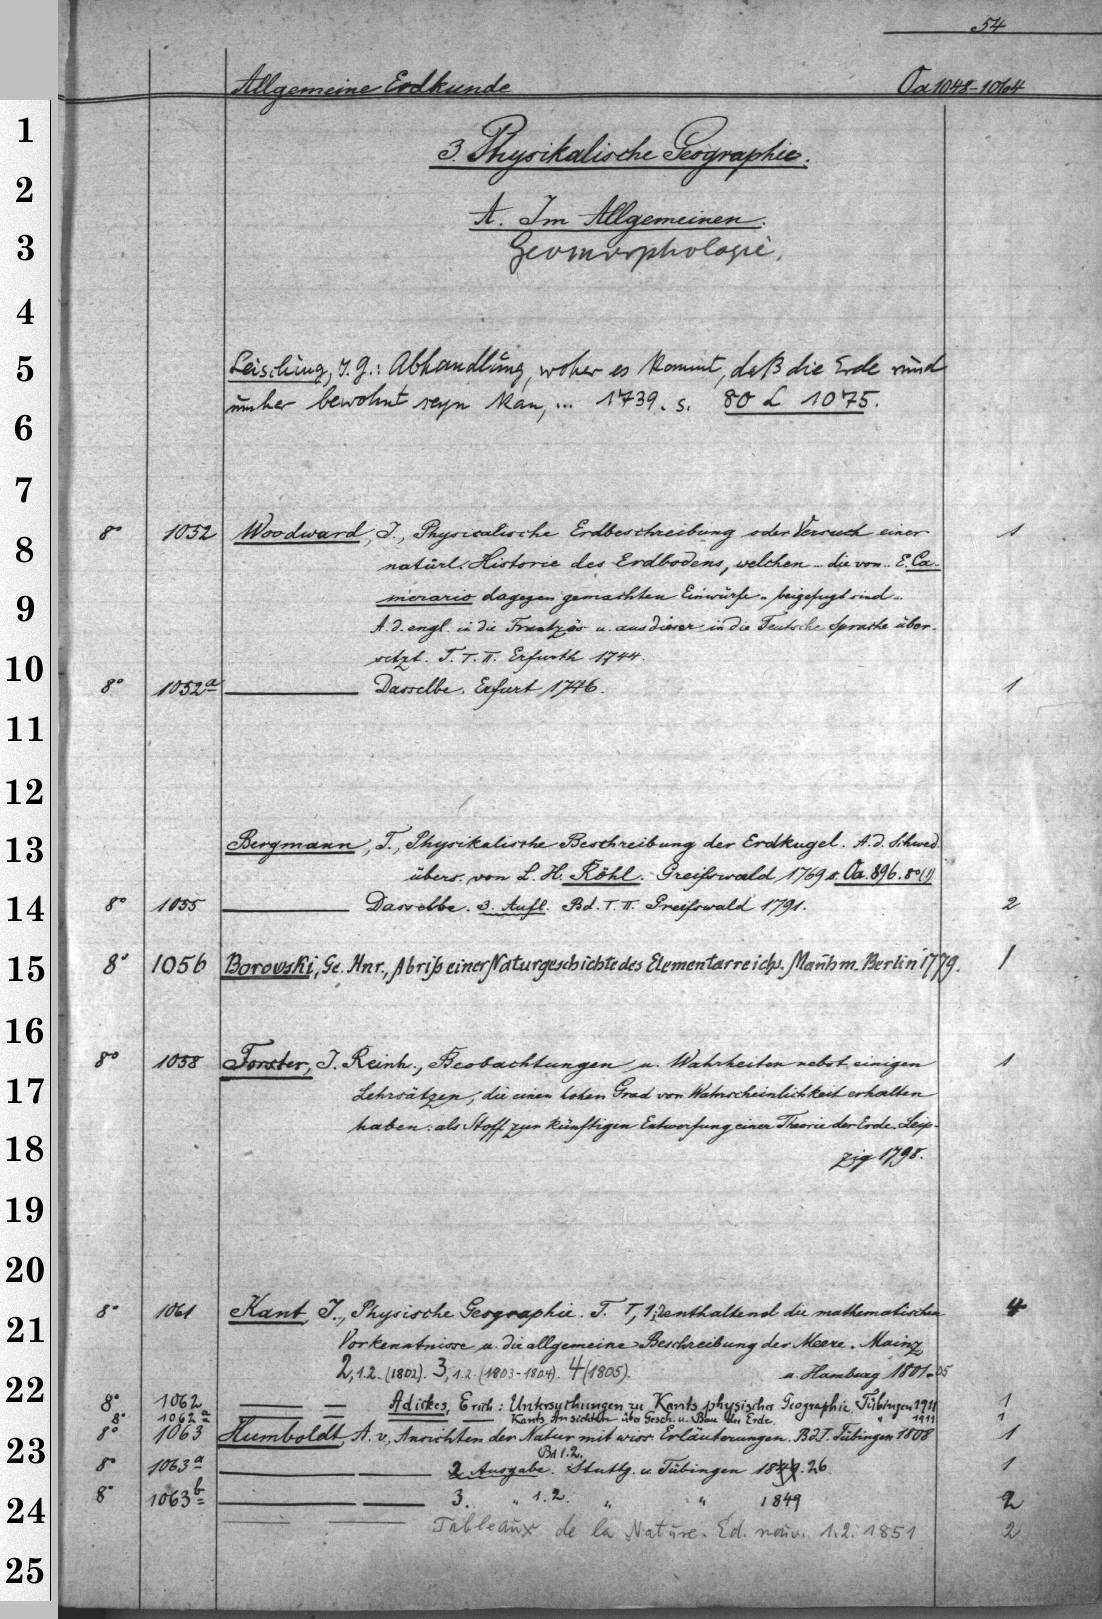 54
Allgemeine Erdkunde Oa 1048-1064
1
3. Physikalische Geographie.
2
A. Im Allgemeinen.
3
Geomorphologie.
4
5
Leisching, J. G.: Abhandlung, woher es kommt, daß die Erde rund
umher bewohnt seyn kan, ... 1739. s. 80 L 1075.
6
7
8° 1052 Woodward, J., Physicalische Erdbeschreibung oder Versuch einer 1
8
natürl. Historie des Erdbodens, welchen ... die von .. E. Ca-
9
merario dagegen gemachten Einwürfe .. beigefügt sind ..
A. d. engl. in die Frantzös u. aus dieser in die Teutsche Sprache über-
10
setzt. T. I. II. Erfurth 1744.
8° 1052a Dasselbe. Erfurt 1746. 1
11
12
13
Bergmann, T., Physikalische Beschreibung der Erdkugel. A. d. Schwed.
übers. von L. H. Röhl. Greifswald 1769 s. Oa. 896. 8° (1)
14
8° 1055 Dasselbe. 3. Aufl. Bd. I. II. Greifswald 1791. 2
15
8° 1056 Borowski, Ge. Hnr., Abriß einer Naturgeschichte des Elementarreichs. Berlin 1779. 1
16
8° 1058 Forster, J. Reinh., Beobachtungen u. Wahrheiten nebst einigen 1
17
Lehrsätzen, die einen hohen Grad von Wahrscheinlichkeit erhalten
haben: als Stoff zur künftigen Entwerfung einer Theorie der Erde. Leip-
18
zig 1798.
19
20
8° 1061 Kant, I., Physische Geographie. T. I, 1.2 enthaltend die mathematischen 4
21
Vorkenntnisse u. die allgemeine Beschreibung der Meere. Mainz
2, 1.2. (1802). 3, 1.2. (1803-1804). 4 (1805). u. Hamburg 1801-05
22
8° 1062 Adickes, Erich: Untersuchungen zu Kants physischer Geographie. Tübingen 1911 1
8° 1062a Kants Ansichten über Gesch. u. Bau der Erde. " 1911 1
8° 1063 Humboldt, A. v., Ansichten der Natur mit wiss. Erläuterungen. Bd I. Tübingen 1808 1
23
8° 1063a 2. Ausgabe. Bd 1.2. Stuttg. u. Tübingen 1826. 1
8° 1063b 3. " 1.2. " " 1849 2
24
Tableaux de la Nature. Ed. nouv. 1.2. 1851 2
25